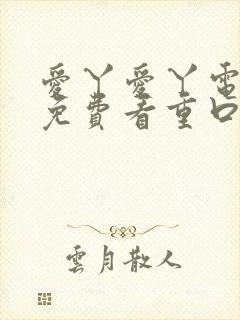 愛丫愛丫電
免費看重口
雲月散人